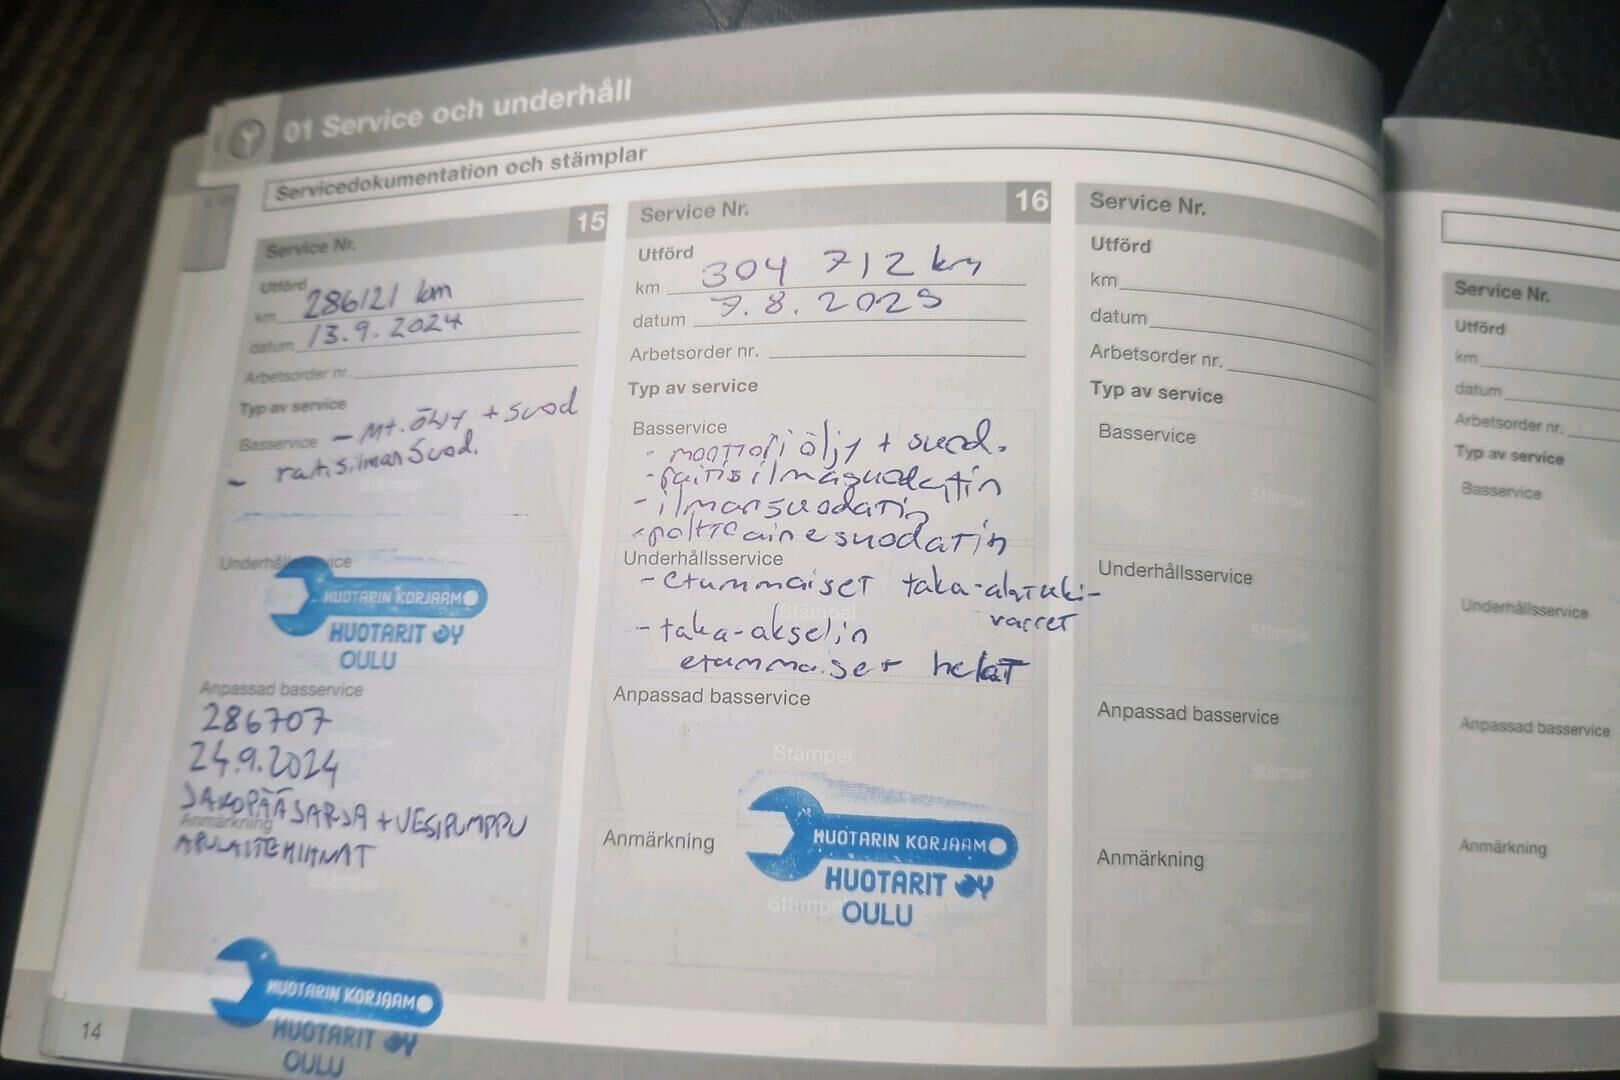 01 Service och underhåll
Servicedokumentation och stämplar
Service Nr. 15
Utförd
km 286121 km
datum 13.9.2024
Arbetsorder nr.
Typ av service
Basservice - Mt. öljy + suod
- ratisilman suod.
Stämpel
Underhållsservice
HUOTARIN KORJAAMO
HUOTARIT OY
OULU
Anpassad basservice
286707
24.9.2024
JAKOPÄÄSARJA + VESIPUMPPU
Anmärkning
APULAITEHIHNAT
Stämpel
HUOTARIN KORJAAMO
HUOTARIT OY
OULU
14
Service Nr. 16
Utförd
km 304 712 km
datum 7.8.2025
Arbetsorder nr.
Typ av service
Basservice
- moottoriöljy + suod.
- raitisilmasuodatin
- ilmansuodatin
- polttoainesuodatin
Underhållsservice
- etummaiset taka-alatuki-
varret
Stämpel
- taka-akselin
etummaiset helat
Anpassad basservice
Stämpel
Anmärkning
HUOTARIN KORJAAMO
HUOTARIT OY
Stämpel
OULU
Service Nr.
Utförd
km
datum
Arbetsorder nr.
Typ av service
Basservice
Stämpel
Underhållsservice
Stämpel
Anpassad basservice
Stämpel
Anmärkning
Stämpel
Service Nr.
Utförd
km
datum
Arbetsorder nr.
Typ av service
Basservice
Underhållsservice
Anpassad basservice
Anmärkning